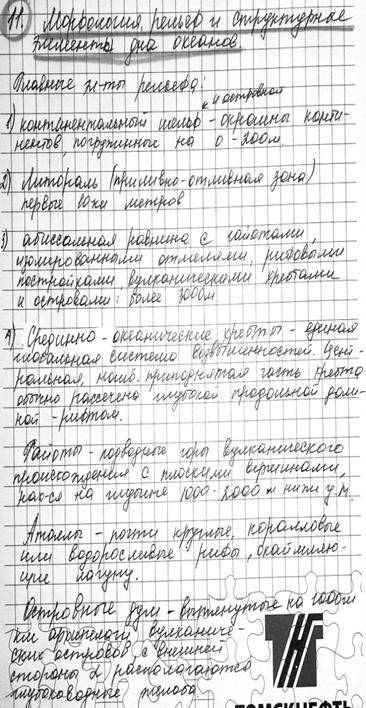 11. Морфология, рельеф и структурные
элементы дна океанов
Главные эл-ты рельефа:
и островной
1) континентальный шельф - окраины конти-
нентов, погруженные на 0-200м.
2) Литораль (приливно-отливная зона)
первые 10ки метров
3) абиссальная равнина с гайотами,
изолированными отмелями, рифовыми
постройками, вулканическими хребтами
и островами: более 3000м
4) Срединно-океанические хребты - единая
глобальная система возвышенностей. Цент-
ральная, наиб. приподнятая часть хребта
обычно рассечена глубокой продольной доли-
ной - рифтом.
Гайоты - подводные горы вулканического
происхождения с плоскими вершинами,
нах-ся на глубине 1000-2000 м ниже у.м.
Атоллы - почти круглые, коралловые
или водорослевые рифы, окаймляю-
щие лагуну.
Островные дуги - вытянутые на 1000ги
км архипелаги вулканиче-
ских островов с внешней
стороны располагаются
глубоководные желоба.
ТОМСКНЕФТЬ